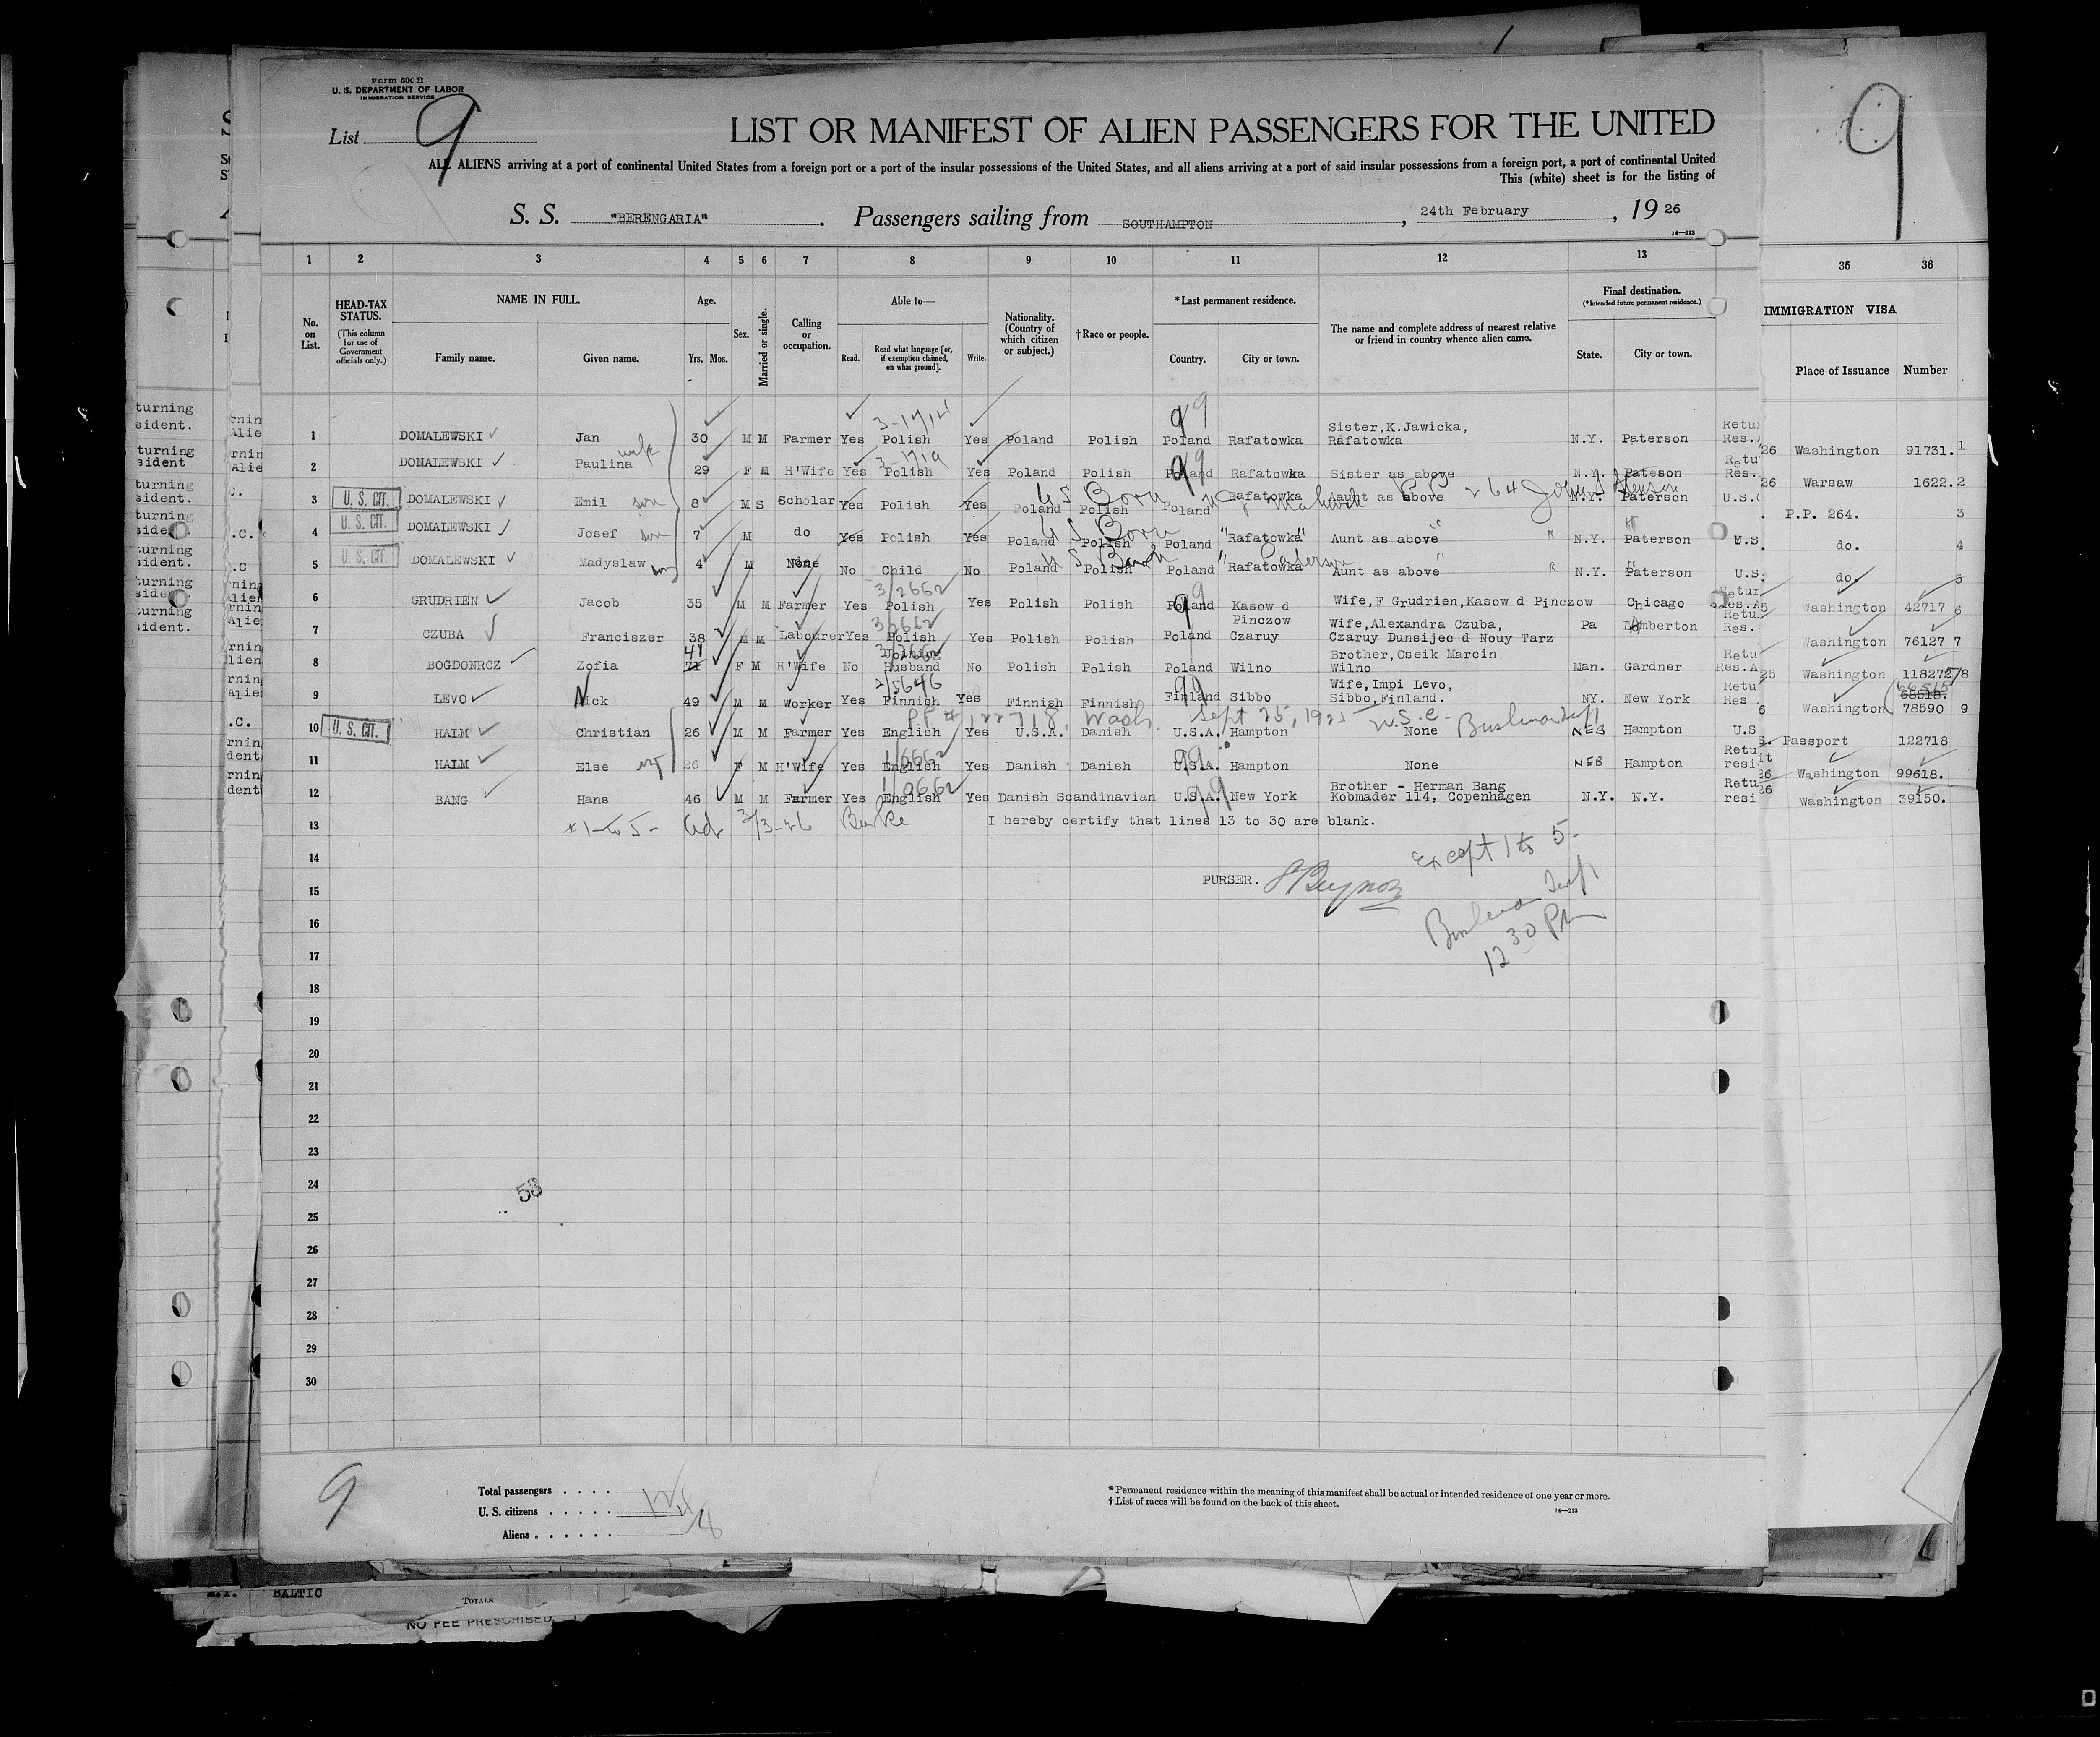 Form 500 B
U. S. DEPARTMENT OF LABOR
IMMIGRATION SERVICE
List 9
9
LIST OR MANIFEST OF ALIEN PASSENGERS FOR THE UNITED
ALL ALIENS arriving at a port of continental United States from a foreign port or a port of the insular possessions of the United States, and all aliens arriving at a port of said insular possessions from a foreign port, a port of continental United
This (white) sheet is for the listing of
S. S. "BERENGARIA". Passengers sailing from SOUTHAMPTON, 24th February, 19 26
14—213
1 2 3 4 5 6 7 8 9 10 11 12 13 35 36
No. on List.
HEAD-TAX STATUS.
(This column for use of Government officials only.)
NAME IN FULL.
Family name. Given name.
Age.
Yrs. Mos.
Sex.
Married or single.
Calling or occupation.
Able to—
Read. Read what language [or, if exemption claimed, on what ground]. Write.
Nationality. (Country of which citizen or subject.)
† Race or people.
* Last permanent residence.
Country. City or town.
The name and complete address of nearest relative or friend in country whence alien came.
Final destination.
(* Intended future permanent residence.)
State. City or town.
IMMIGRATION VISA
Place of Issuance Number
1 DOMALEWSKI Jan 30 M M Farmer Yes Polish Yes Poland Polish Poland Rafatowka Sister, K.Jawicka, Rafatowka N.Y. Paterson Washington 91731. 1
2 DOMALEWSKI Paulina wife 29 F M H'Wife Yes Polish Yes Poland Polish Poland Rafatowka Sister as above N.Y. Pateson Warsaw 1622. 2
3 U. S. CIT. DOMALEWSKI Emil son 8 M S Scholar Yes Polish Yes Poland Polish Poland Rafatowka Aaunt as above N.Y. Paterson P.P. 264. 3
U S Born
4 U. S. CIT. DOMALEWSKI Josef son 7 M do Yes Polish Yes Poland Polish Poland "Rafatowka" Aunt as above N.Y. Paterson do. 4
U S Born
5 U. S. CIT. DOMALEWSKI Madyslaw son 4 M None No Child No Poland Polish Poland Rafatowka Aunt as above N.Y. Paterson do. 5
6 GRUDRIEN Jacob 35 M M Farmer Yes Polish Yes Polish Polish Poland Kasow d Pinczow Wife,F Grudrien,Kasow d Pinczow Chicago Washington 42717 6
3/2662
7 CZUBA Franciszer 38 M M Labourer Yes Polish Yes Polish Polish Poland Czaruy Wife,Alexandra Czuba, Czaruy Dunsijec d Nouy Tarz Pa Lamberton Washington 76127 7
8 BOGDONRCZ Zofia 71 41 F M H'Wife No Joining Husband No Polish Polish Poland Wilno Brother,Oseik Marcin, Wilno Man. Gardner Washington 118272 8
9 LEVO Nick 49 M M Worker Yes Finnish Yes Finnish Finnish Finland Sibbo Wife,Impi Levo, Sibbo,Finland. NY. New York Washington 68518. 78590 9
2/5646
PP # 122718, Wash. Sept 25, 1925 U.S.C.
10 U. S. CIT. HALM Christian 26 M M Farmer Yes English Yes U.S.A. Danish U.S.A. Hampton None NEB Hampton Passport 122718
11 HALM Else 26 F M H'Wife Yes English Yes Danish Danish U.S.A. Hampton None NEB Hampton Washington 99618.
12 BANG Hans 46 M M Farmer Yes English Yes Danish Scandinavian U.S.A. New York Brother - Herman Bang Kobmader 114, Copenhagen N.Y. N.Y. Washington 39150.
13 I hereby certify that lines 13 to 30 are blank.
14 Except 1 to 5-
15 PURSER.
16
17 12 30 PM
18
19
20
21
22
23
24 53
25
26
27
28
29
30
9
Total passengers
U. S. citizens
Aliens
* Permanent residence within the meaning of this manifest shall be actual or intended residence of one year or more.
† List of races will be found on the back of this sheet.
14—213
BALTIC
TOTALS
NO FEE PRESCRIBED